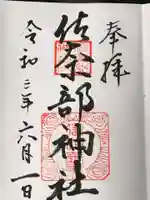 奉拝
佐奈部神社
令和三年六月一日